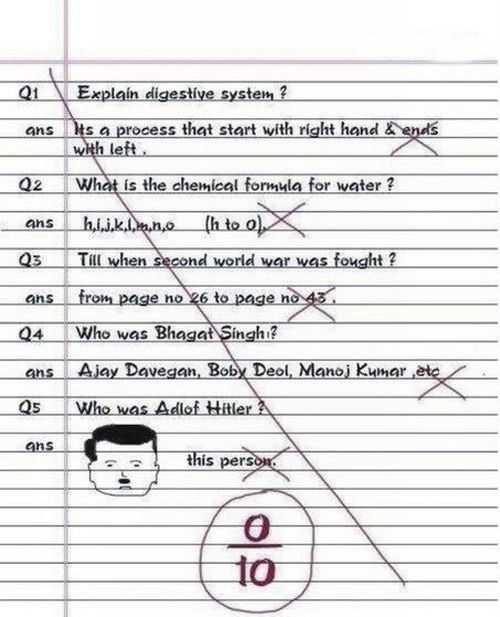 Q1 Explain digestive system ?
ans Its a process that start with right hand & ends
with left .
Q2 What is the chemical formula for water ?
ans h,i,j,k,l,m,n,o (h to o).
Q3 Till when second world war was fought ?
ans from page no 26 to page no 43 .
Q4 Who was Bhagat Singh?
ans Ajay Davegan, Boby Deol, Manoj Kumar ,etc
Q5 Who was Adlof Hitler ?
ans this person.
0
10